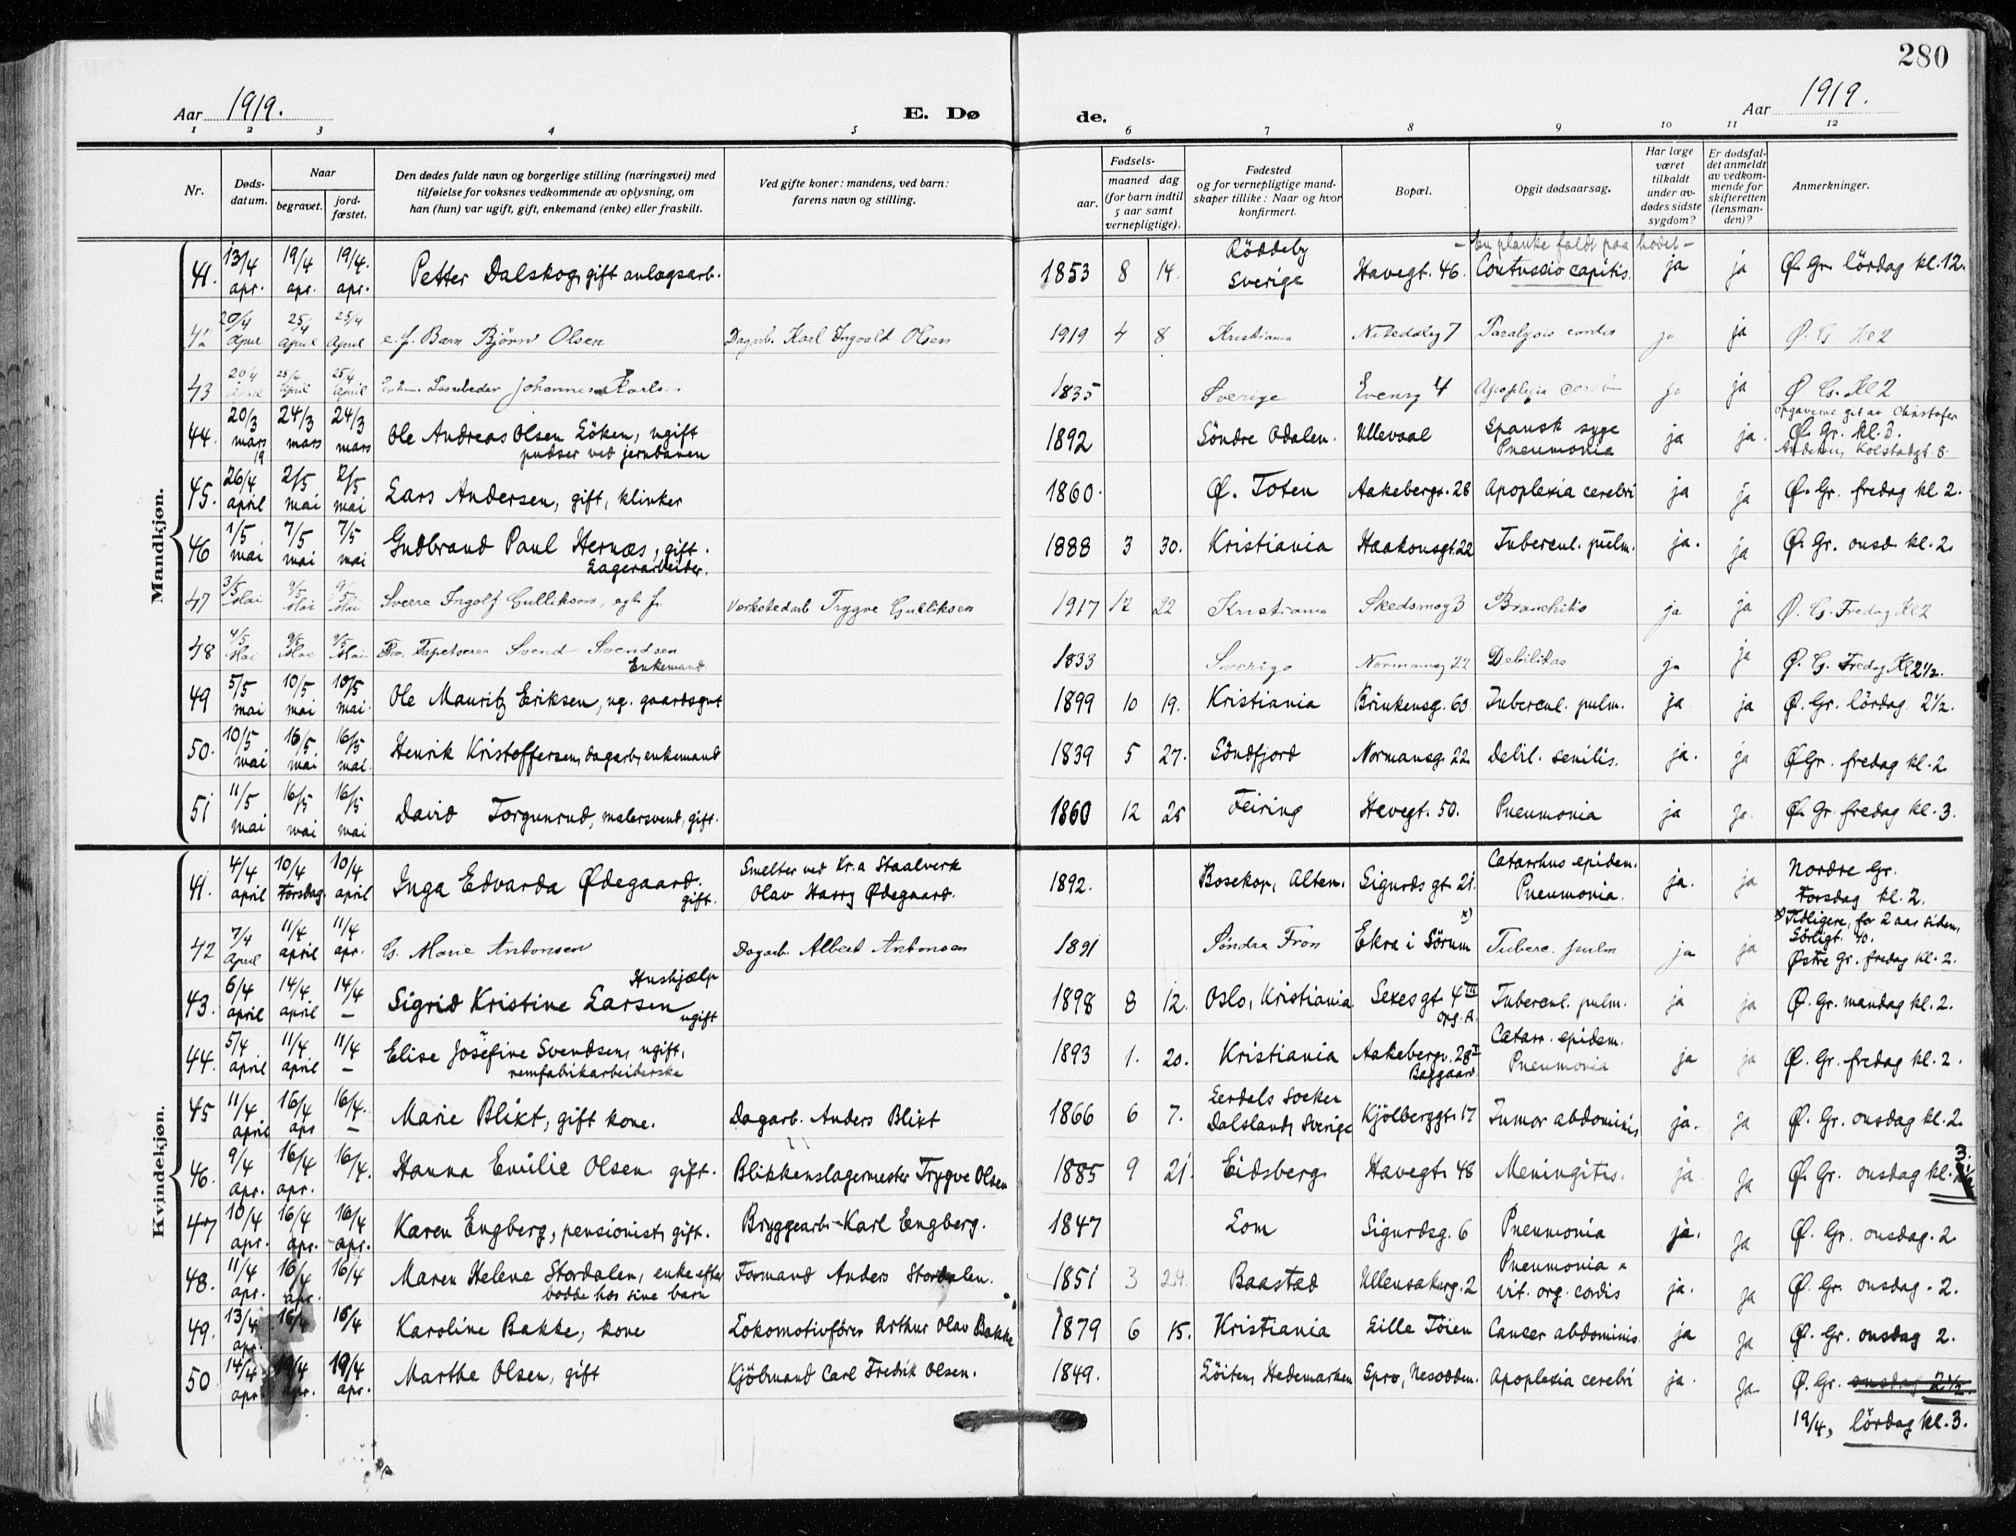 280
Aar 1919.
E. Dø
de.
Aar 1919.
1 2 3 4 5 6 7 8 9 10 11 12
Nr.
Døds-
datum.
Naar
begravet.
jord-
fæstet.
Den dødes fulde navn og borgerlige stilling (næringsvei) med
tilføielse for voksnes vedkommende av oplysning, om
han (hun) var ugift, gift, enkemand (enke) eller fraskilt.
Ved gifte koner: mandens, ved barn:
farens navn og stilling.
Fødsels-
aar.
maaned dag
(for barn indtil
5 aar samt
vernepligtige).
Fødested
og for vernepligtige mand-
skaper tillike: Naar og hvor
konfirmert.
Bopæl.
Opgit dødsaarsag.
Har læge
været
tilkaldt
under av-
dødes sidste
sygdom?
Er dødsfal-
det anmeldt
av vedkom-
mende for
skifteretten
(lensman-
den)?
Anmerkninger.
Mandkjøn.
— En planke faldt paa hodet —
Röddeby
41. 13/4 apr. 19/4 apr. 19/4. apr. Petter Dalskog, gift anlagsarb. 1853 8 14. Sverige Havegt. 46. Contussio capitis. ja ja Ø. Gr. lördag kl. 12.
42 20/4 April 25/4 April 25/4 April e. f. Barn Björn Olsen Dagarb. Karl Ingvald Olsen 1919 4 8 Kristiania 7 Paralysis cordis ja ja Ø. G Kl 2
43 20/4 April 25/4 April 25/4 April Johannes Karls 1835 Sverige 4 Apoplexia ja ja Ø G. Kl 2
opgaverne git av Christofer
44. 20/3 mars 19 24/3 mars 24/3 mars Ole Andreas Olsen Löken, ugift 1892 Söndre Odalen. Ullevaal Spansk syge ja ja. Ø. Gr. kl. 3.
pudser ved jernbanen Pneumonia Kolstadgt. 8.
45. 26/4 april 2/5 mai 2/5 mai Lars Andersen, gift, klinker 1860. Ø. Toten Aakebergv. 28 Apoplexia cerebri ja ja Ø. Gr. fredag kl 2.
46 1/5 mai 7/5 mai 7/5 mai Gudbrand Paul Hernæs, gift. 1888 3 30. Kristiania Haakonsgt. 22 Tubercul. pulm. ja. ja Ø. Gr. onsd. kl. 2.
Lagerarbeider.
47 3/5 Mai 9/5 Mai 9/5 Mai Sverre Ingolf Gulliksen, egte f. Verkstedarb Trygve Gulliksen 1917 12 22 Kristiania Skedsmog 3 Bronchitis ja ja Ø. G. Fredag Kl 2
48 4/5 Mai 9/5 Mai 9/5 Mai Tapetserer Svend Svendsen 1833 Sverige Normansg 22 Debilitas ja ja Ø. G. Fredag Kl 2½.
Enkemand
49 5/5 mai 10/5 mai 10/5 mai. Ole Mauritz Eriksen, ug. gaardsgut 1899 10 19. Kristiania Brinkensg. 60 Tubercul. pulm. ja ja Ø. Gr. lördag 2½.
50. 10/5 mai 16/5. mai 16/5 mai. Henrik Kristoffersen, dagarb, enkemand 1839 5 27. Söndfjord Normansg. 22 Debil. senilis. ja. ja Ø Gr. fredag kl. 2
51 11/5 mai 16/5 mai 16/5 mai David Torgunrud, malersvend, gift. 1860 12 25 Feiring Havegt. 50. Pneumonia ja ja. Ø. Gr. fredag kl. 3.
Kvindekjøn.
Smelter ved Kr.a Staalverk Catarrhus epidem. Nordre Gr.
41. 4/4 april 10/4 Torsdag. 10/4 april Inga Edvarda Ødegaard. Olav Harry Ødegaard. 1892. Bosekop, Alten. Sigurds gt. 21. Pneumonia. ja. ja Torsdag kl. 2.
gift.
x) Tidligere, for 2 aar siden,
Sörligt. 10.
42 7/4 April 11/4 april 11/4 apr. G. Marie Antonsen Dagarb. Albert Antonsen 1891 Söndre Fron Ekra i Sörum x) Tuberc. pulm ja ja Østre Gr. fredag kl. 2.
Hushjælp
43. 6/4 april 14/4 april 14/4 — Sigrid Kristine Larsen ugift 1898 8 12. Oslo, Kristiania Sexes gt. 4 III opg. A. Tubercul. pulm. ja ja Ø. Gr. mandag kl. 2.
44. 5/4 april 11/4 april 11/4 — Elise Josefine Svendsen, ugift, 1893 1. 20. Kristiania Aakebergv. 28 II Catarr. epidem. ja ja Ø. Gr. fredag kl. 2.
remfabrikarbeiderske Baggaard Pneumonia
45 11/4 april 16/4 apr 16/4. — Marie Blixt, gift kone. Dagarb. Anders Blixt 1866 6 7. Lerdals Socken Dalsland, Sverige Kjölberggt. 17 Tumor abdominis ja. ja Ø. Gr. onsdag kl. 2.
46. 9/4 apr. 16/4 apr. 16/4. Hanna Emilie Olsen gift. Blikkenslagermester Trygve Olsen 1885 9 21. Eidsberg Havegt. 48 Meningitis. ja ja Ø. Gr. onsdag kl. 3.
47 10/4 apr. 16/4 apr. 16/4 apr. Karen Engberg, pensionist, gift. Bryggearb. Karl Engberg. 1847 Lom Sigurdsg. 6 Pneumonia ja. ja Ø. Gr. onsdag. 2
48. 11/4 apr. 16/4 apr. 16/4 Maren Helene Stordalen, enke efter Formand Anders Stordalen. 1851 3 24. Baastad Ullensakerg. 2 Pneumonia ja. ja Ø. Gr. onsdag. 2.
bodde hos sine barn vit. org. cordis
49. 13/4 apr. 16/4 16/4 Karoline Bakke, kone Lokomotivförer Arthur Olav Bakke 1879 6 15. Kristiania Lille Töien Cancer abdominis. ja ja Ø. Gr. onsdag 2.
50 14/4 apr. 19/4 apr. 19/4 apr. Marthe Olsen, gift Kjöbmand Carl Fredrik Olsen. 1849. Löiten, Hedemarken Spro, Nesodden. Apoplexia cerebri ja. ja. Ø. Gr. onsdag 2½.
19/4, lördag kl. 3.